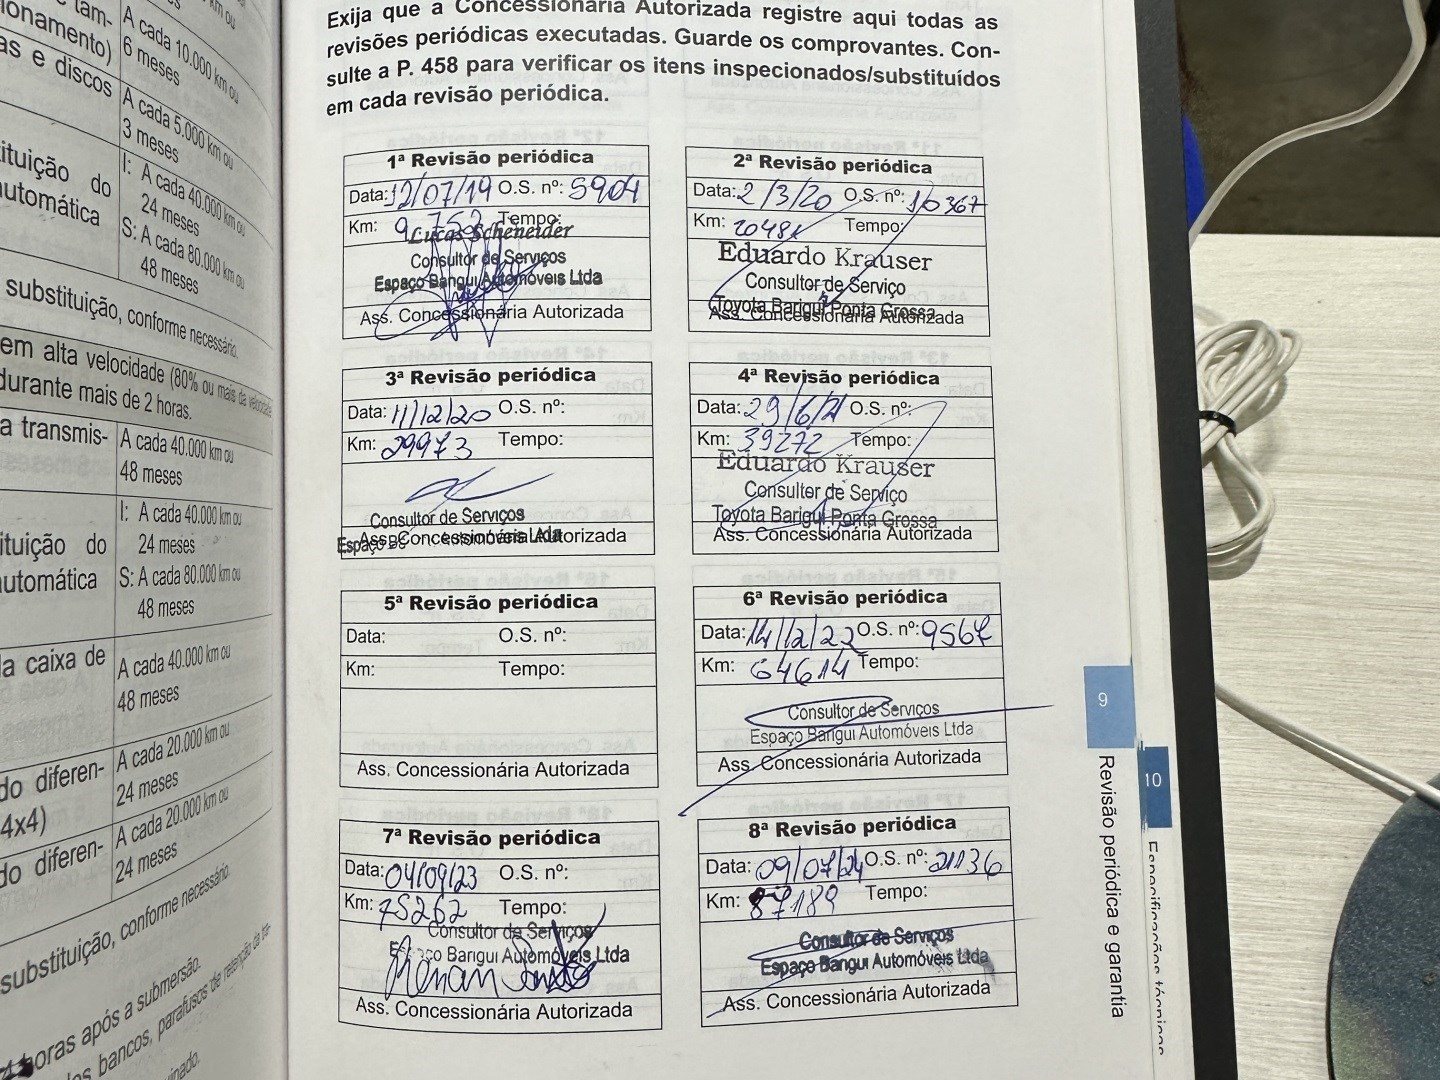 A cada 10.000 km ou
6 meses
ionamento)
as e discos
A cada 5.000 km ou
3 meses
tituição do
automática
I: A cada 40.000 km ou
24 meses
S: A cada 80.000 km ou
48 meses
substituição, conforme necessário.
em alta velocidade (80% ou mais da velocidade
durante mais de 2 horas.
a transmis-
A cada 40.000 km ou
48 meses
tituição do
automática
I: A cada 40.000 km ou
24 meses
S: A cada 80.000 km ou
48 meses
la caixa de
A cada 40.000 km ou
48 meses
do diferen-
4x4)
A cada 20.000 km ou
24 meses
do diferen-
A cada 20.000 km ou
24 meses
substituição, conforme necessário.
horas após a submersão.
os bancos, parafusos de retenção da
Exija que a Concessionária Autorizada registre aqui todas as
revisões periódicas executadas. Guarde os comprovantes. Con-
sulte a P. 458 para verificar os itens inspecionados/substituídos
em cada revisão periódica.
1ª Revisão periódica
Data: 12/07/19 O.S. nº: 5904
Km: 9.752 Tempo:
Lucas Scheneider
Consultor de Serviços
Espaço Barigui Automóveis Ltda
Ass. Concessionária Autorizada
2ª Revisão periódica
Data: 2/3/20 O.S. nº: 10367
Km: 20481 Tempo:
Eduardo Krauser
Consultor de Serviço
Toyota Barigui Ponta Grossa
Ass. Concessionária Autorizada
3ª Revisão periódica
Data: 11/12/20 O.S. nº:
Km: 29973 Tempo:
Consultor de Serviços
Espaço Automóveis Ltda
Ass. Concessionária Autorizada
4ª Revisão periódica
Data: 29/6/21 O.S. nº:
Km: 39272 Tempo:
Eduardo Krauser
Consultor de Serviço
Toyota Barigui Ponta Grossa
Ass. Concessionária Autorizada
5ª Revisão periódica
Data: O.S. nº:
Km: Tempo:
Ass. Concessionária Autorizada
6ª Revisão periódica
Data: 14/12/22 O.S. nº: 9567
Km: 64614 Tempo:
Consultor de Serviços
Espaço Barigui Automóveis Ltda
Ass. Concessionária Autorizada
7ª Revisão periódica
Data: 04/09/23 O.S. nº:
Km: 75262 Tempo:
Consultor de Serviços
Espaço Barigui Automóveis Ltda
Ass. Concessionária Autorizada
8ª Revisão periódica
Data: 09/07/24 O.S. nº: 21136
Km: 87189 Tempo:
Consultor de Serviços
Espaço Barigui Automóveis Ltda
Ass. Concessionária Autorizada
9
Revisão periódica e garantia
10
Especificações técnicas